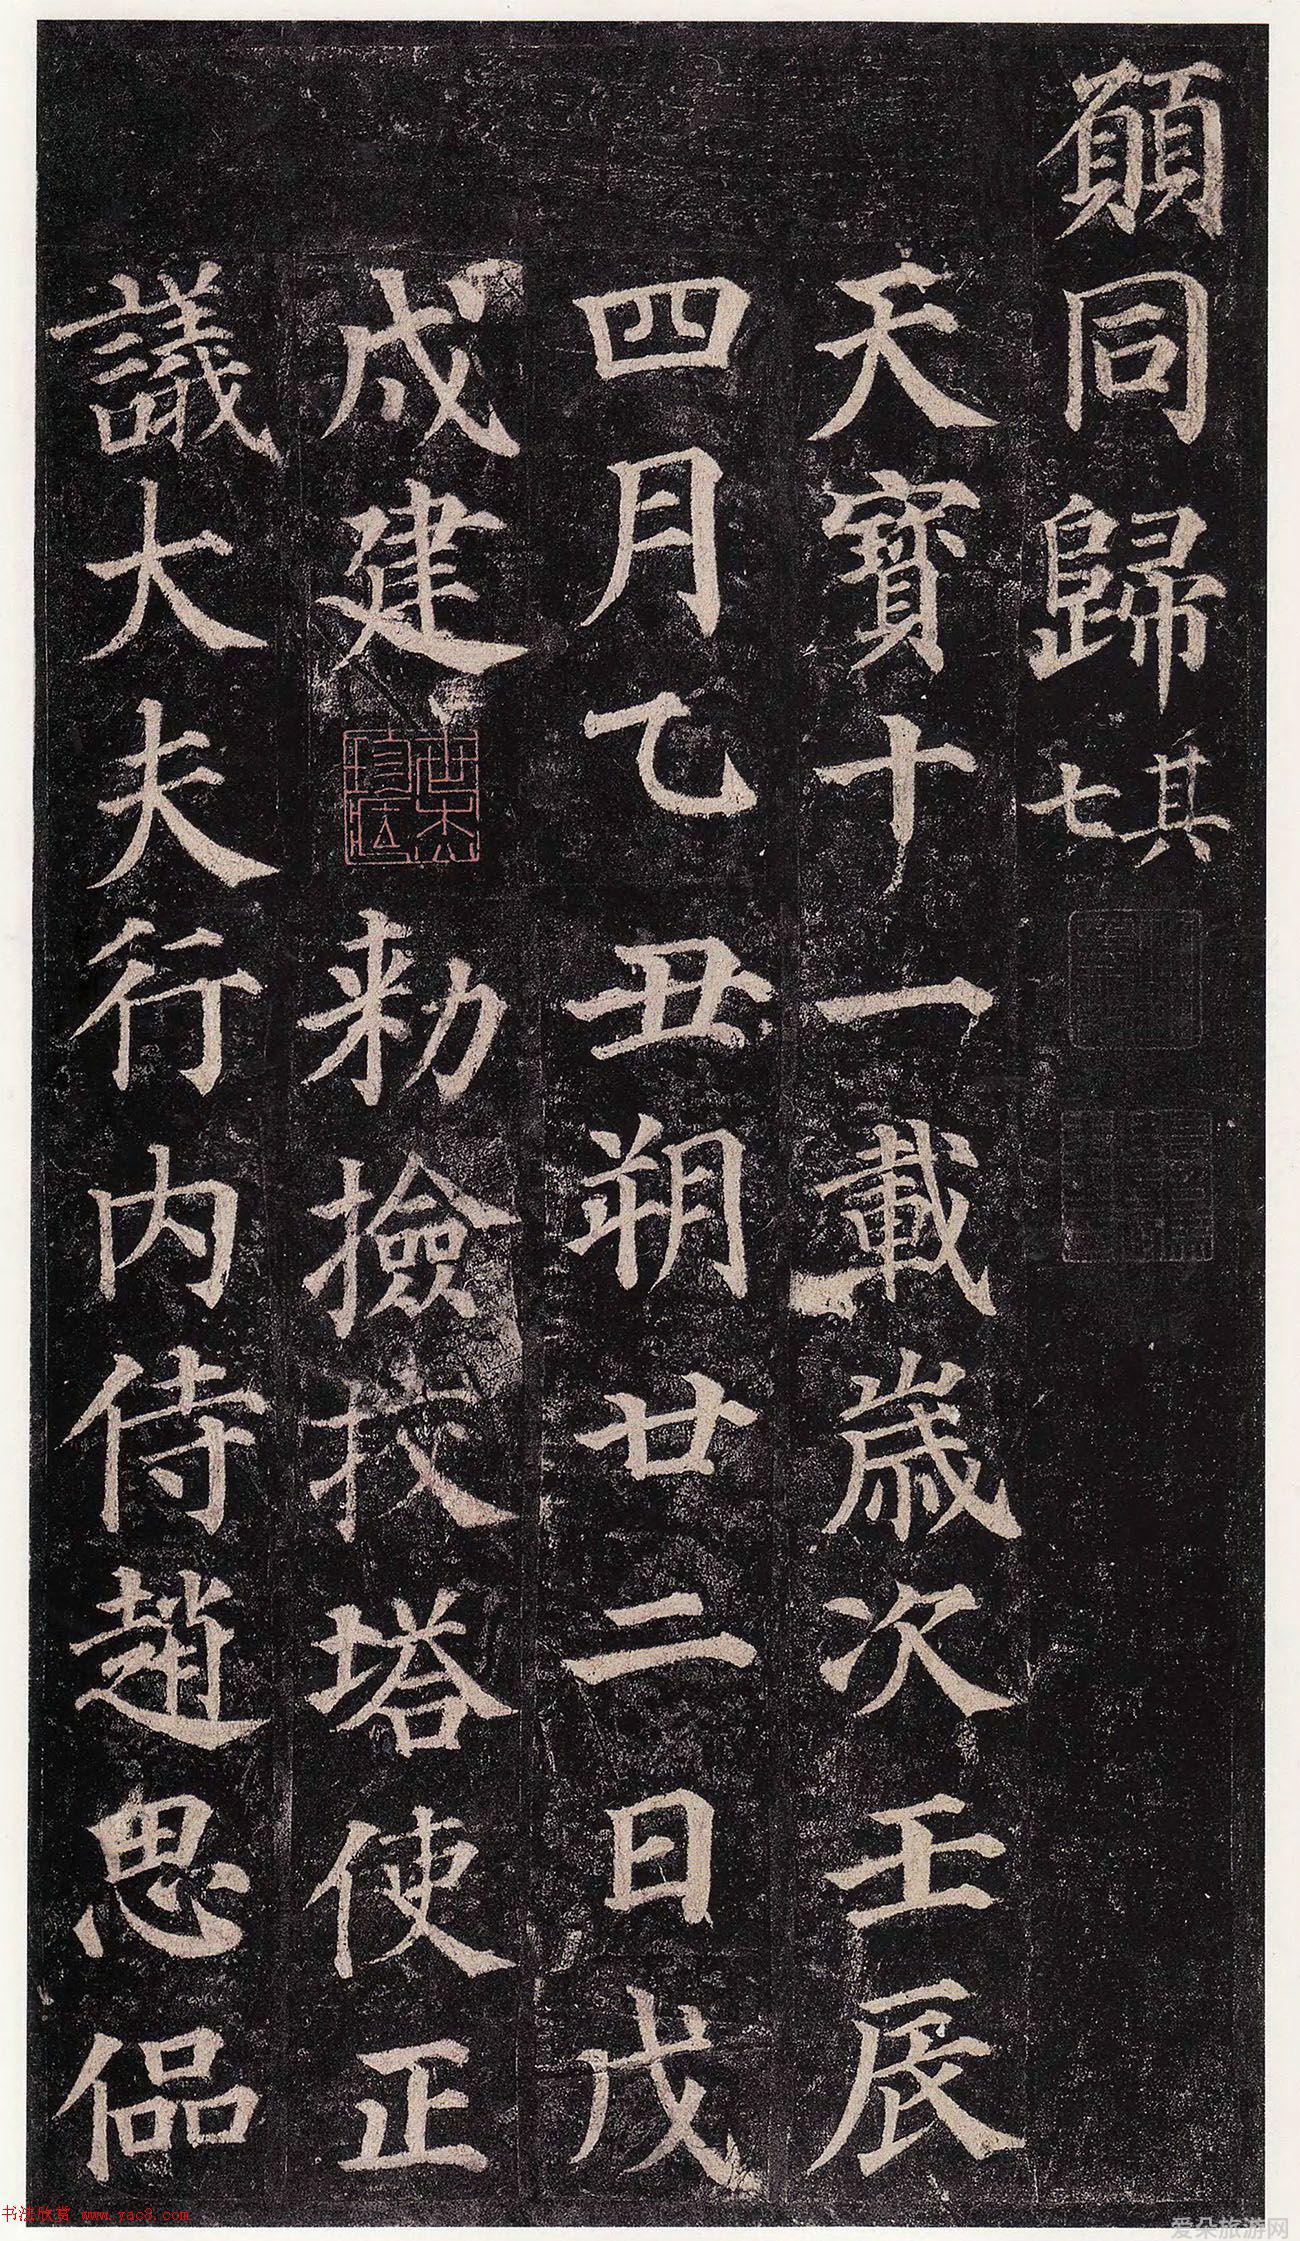 願同歸其七
天寶十一載歲次壬辰
四月乙丑朔廿二日戊
戌建勅撿挍塔使正
議大夫行内侍趙思偘
书法欣赏 www.yac8.com
爱朵旅游网